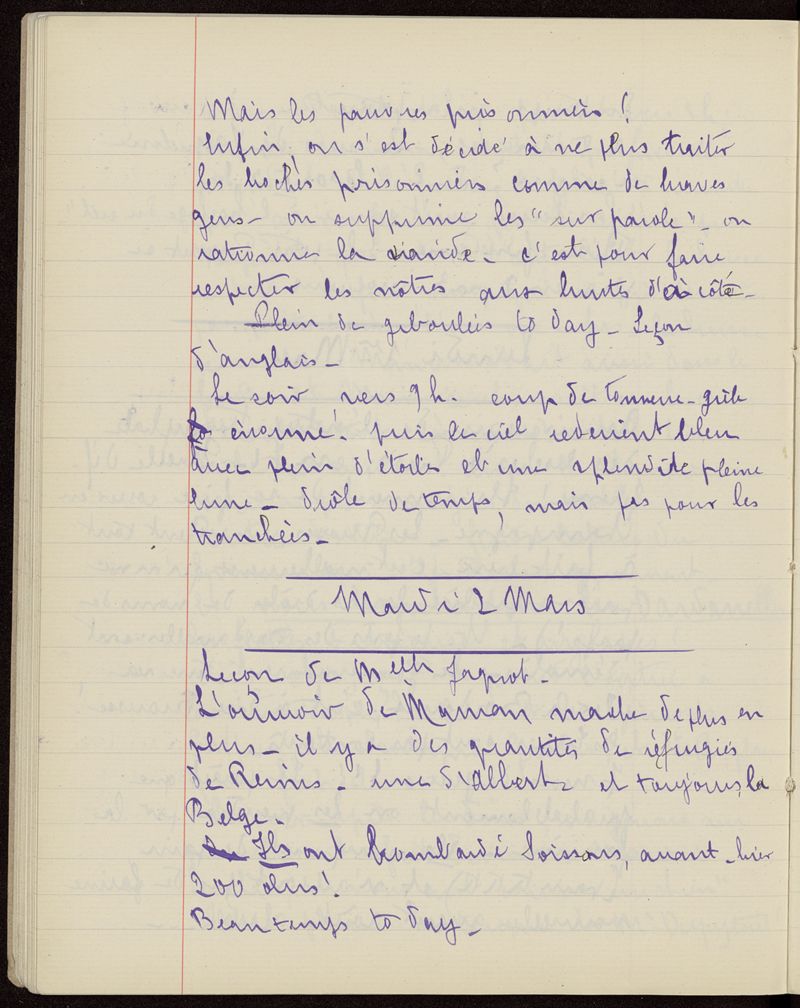 Mais les pauvres prisonniers !
Enfin, on s'est décidé à ne plus traiter
les boches prisonniers comme de braves
gens – on supprime les "sur parole" – on
rationne la viande – c'est pour faire
respecter les nôtres aux huits d'à côté –
Plein de giboulées to day – Leçon
d'anglais –
Le soir vers 9 h. coup de tonnerre – grêle
énorme ! puis le ciel redevient bleu
avec plein d'étoiles et une splendide pleine
lune – drôle de temps, mais pas pour les
tranchées –
Mardi 2 Mars
Leçon de Melle Jaquot –
L'ouvroir de Maman marche de plus en
plus – il y a des quantités de réfugiés
de Reims – une d'Albert – et toujours la
Belge –
Ils ont bombardé Soissons, avant-hier
200 obus !
Beau temps to day –